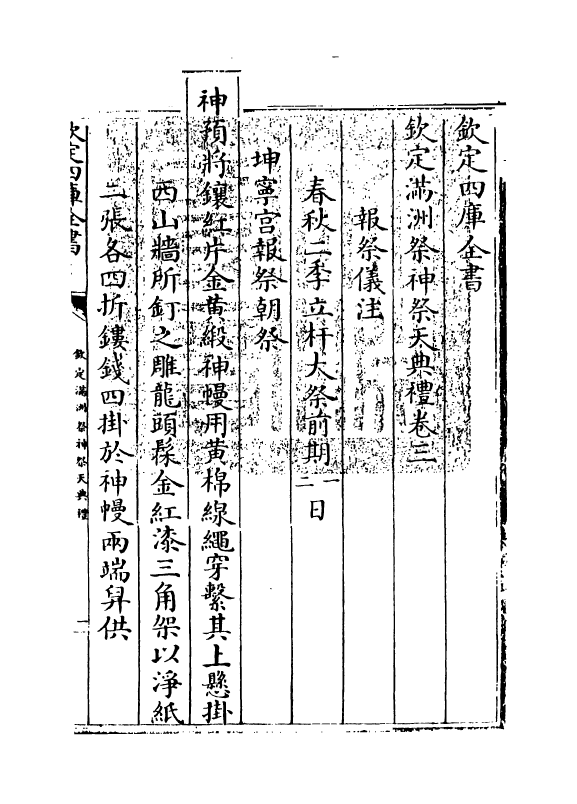 欽定四庫全書
欽定滿洲祭神祭天典禮卷三
報祭儀注
春秋二季立杆大祭前期一二日
坤寧宮報祭朝祭
神預將鑲紅片金黃緞神幔用黃棉線繩穿繫其上懸掛
西山牆所釘之雕龍頭髹金紅漆三角架以淨紙
二張各四折鏤錢四掛於神幔兩端舁供
欽定四庫全書
欽定滿洲祭神祭天典禮